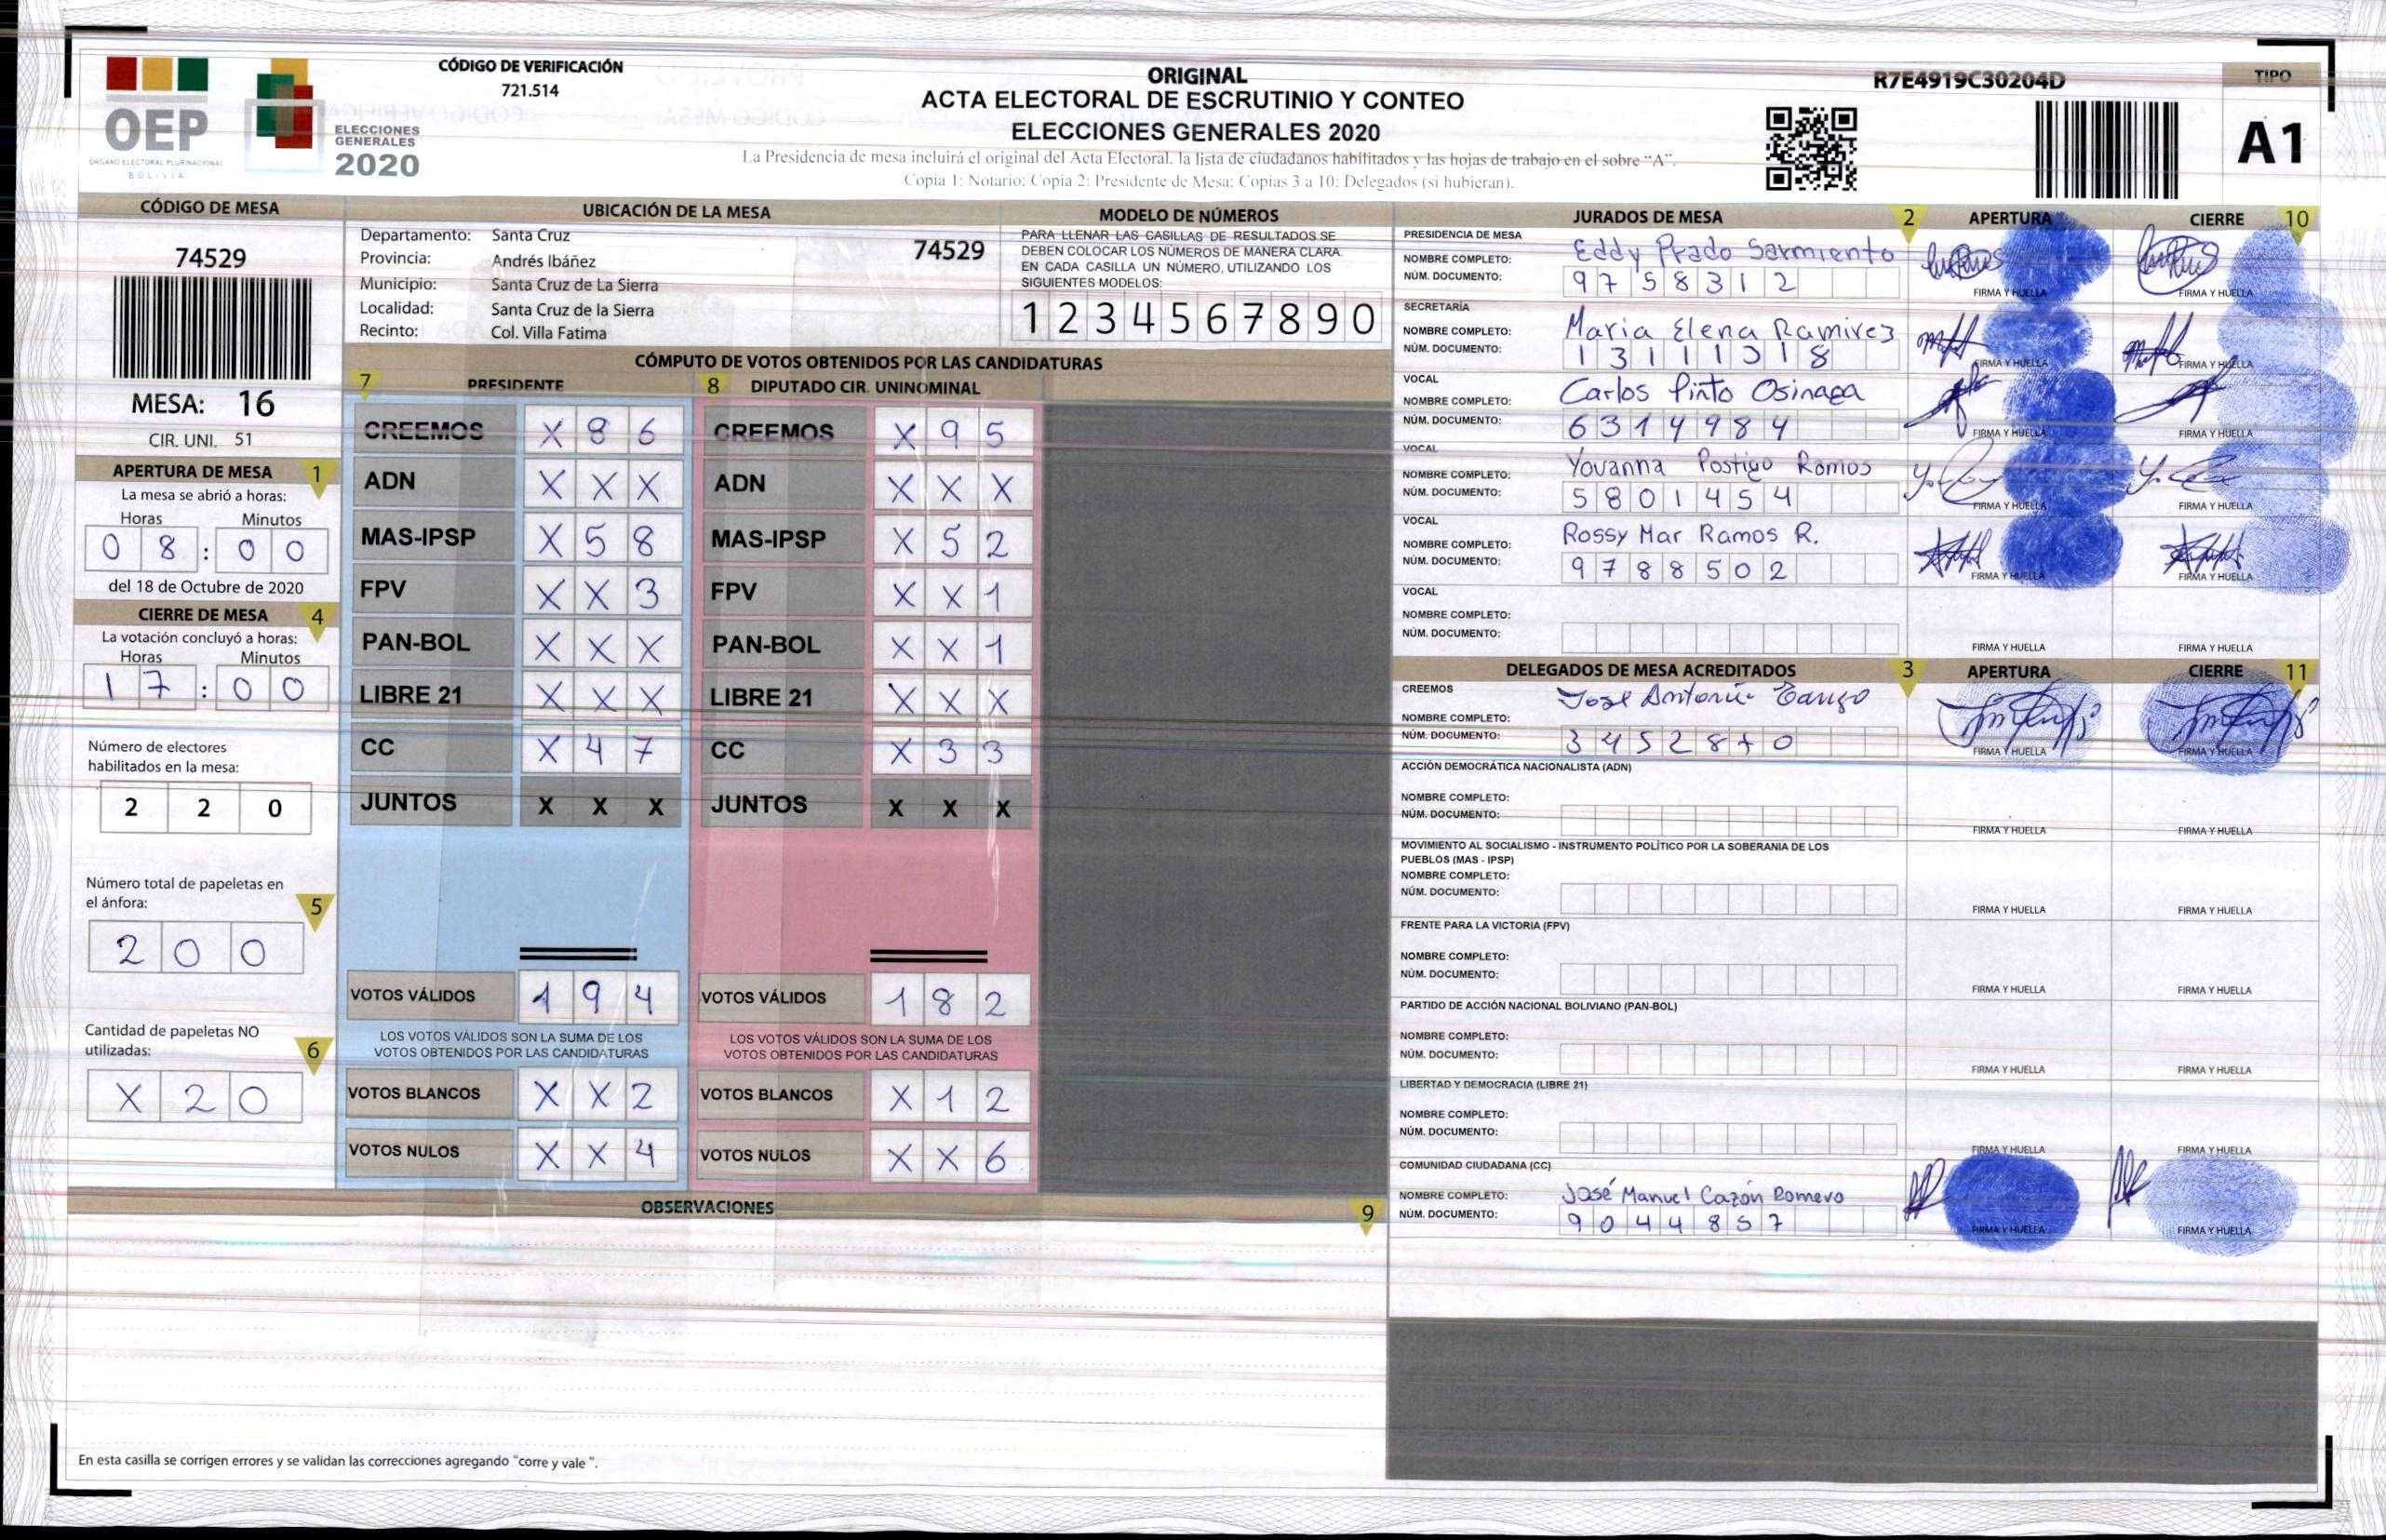 CÓDIGO DE VERIFICACIÓN
721.514
OEP
ÓRGANO ELECTORAL PLURINACIONAL
BOLIVIA
ELECCIONES
GENERALES
2020
ORIGINAL
ACTA ELECTORAL DE ESCRUTINIO Y CONTEO
ELECCIONES GENERALES 2020
La Presidencia de mesa incluirá el original del Acta Electoral, la lista de ciudadanos habilitados y las hojas de trabajo en el sobre “A”.
Copia 1: Notario; Copia 2: Presidente de Mesa; Copias 3 a 10: Delegados (si hubieran).
R7E4919C30204D
TIPO
A1
CÓDIGO DE MESA
74529
MESA: 16
CIR. UNI. 51
APERTURA DE MESA 1
La mesa se abrió a horas:
Horas Minutos
0 8 : 0 0
del 18 de Octubre de 2020
CIERRE DE MESA 4
La votación concluyó a horas:
Horas Minutos
1 7 : 0 0
Número de electores
habilitados en la mesa:
2 2 0
Número total de papeletas en
el ánfora: 5
2 0 0
Cantidad de papeletas NO
utilizadas: 6
X 2 0
UBICACIÓN DE LA MESA
Departamento: Santa Cruz 74529
Provincia: Andrés Ibáñez
Municipio: Santa Cruz de La Sierra
Localidad: Santa Cruz de la Sierra
Recinto: Col. Villa Fatima
MODELO DE NÚMEROS
PARA LLENAR LAS CASILLAS DE RESULTADOS SE
DEBEN COLOCAR LOS NÚMEROS DE MANERA CLARA.
EN CADA CASILLA UN NÚMERO, UTILIZANDO LOS
SIGUIENTES MODELOS:
1 2 3 4 5 6 7 8 9 0
CÓMPUTO DE VOTOS OBTENIDOS POR LAS CANDIDATURAS
7 PRESIDENTE 8 DIPUTADO CIR. UNINOMINAL
CREEMOS X 8 6 CREEMOS X 9 5
ADN X X X ADN X X X
MAS-IPSP X 5 8 MAS-IPSP X 5 2
FPV X X 3 FPV X X 1
PAN-BOL X X X PAN-BOL X X 1
LIBRE 21 X X X LIBRE 21 X X X
CC X 4 7 CC X 3 3
JUNTOS X X X JUNTOS X X X
VOTOS VÁLIDOS 1 9 4 VOTOS VÁLIDOS 1 8 2
LOS VOTOS VÁLIDOS SON LA SUMA DE LOS LOS VOTOS VÁLIDOS SON LA SUMA DE LOS
VOTOS OBTENIDOS POR LAS CANDIDATURAS VOTOS OBTENIDOS POR LAS CANDIDATURAS
VOTOS BLANCOS X X 2 VOTOS BLANCOS X 1 2
VOTOS NULOS X X 4 VOTOS NULOS X X 6
OBSERVACIONES 9
En esta casilla se corrigen errores y se validan las correcciones agregando "corre y vale ".
JURADOS DE MESA 2 APERTURA CIERRE 10
PRESIDENCIA DE MESA
NOMBRE COMPLETO: Eddy Prado Sarmiento
NÚM. DOCUMENTO: 9 7 5 8 3 1 2
FIRMA Y HUELLA FIRMA Y HUELLA
SECRETARÍA
NOMBRE COMPLETO: Maria Elena Ramirez
NÚM. DOCUMENTO: 1 3 1 1 1 3 1 8
FIRMA Y HUELLA FIRMA Y HUELLA
VOCAL
NOMBRE COMPLETO: Carlos Pinto Osinaga
NÚM. DOCUMENTO: 6 3 1 4 9 8 4
FIRMA Y HUELLA FIRMA Y HUELLA
VOCAL
NOMBRE COMPLETO: Yovanna Postigo Ramos
NÚM. DOCUMENTO: 5 8 0 1 4 5 4
FIRMA Y HUELLA FIRMA Y HUELLA
VOCAL
NOMBRE COMPLETO: Rossy Mar Ramos R.
NÚM. DOCUMENTO: 9 7 8 8 5 0 2
FIRMA Y HUELLA FIRMA Y HUELLA
VOCAL
NOMBRE COMPLETO:
NÚM. DOCUMENTO:
FIRMA Y HUELLA FIRMA Y HUELLA
DELEGADOS DE MESA ACREDITADOS 3 APERTURA CIERRE 11
CREEMOS
NOMBRE COMPLETO: José Antonio
NÚM. DOCUMENTO: 3 4 5 2 8 7 0
FIRMA Y HUELLA FIRMA Y HUELLA
ACCIÓN DEMOCRÁTICA NACIONALISTA (ADN)
NOMBRE COMPLETO:
NÚM. DOCUMENTO:
FIRMA Y HUELLA FIRMA Y HUELLA
MOVIMIENTO AL SOCIALISMO - INSTRUMENTO POLÍTICO POR LA SOBERANIA DE LOS
PUEBLOS (MAS - IPSP)
NOMBRE COMPLETO:
NÚM. DOCUMENTO:
FIRMA Y HUELLA FIRMA Y HUELLA
FRENTE PARA LA VICTORIA (FPV)
NOMBRE COMPLETO:
NÚM. DOCUMENTO:
FIRMA Y HUELLA FIRMA Y HUELLA
PARTIDO DE ACCIÓN NACIONAL BOLIVIANO (PAN-BOL)
NOMBRE COMPLETO:
NÚM. DOCUMENTO:
FIRMA Y HUELLA FIRMA Y HUELLA
LIBERTAD Y DEMOCRACIA (LIBRE 21)
NOMBRE COMPLETO:
NÚM. DOCUMENTO:
FIRMA Y HUELLA FIRMA Y HUELLA
COMUNIDAD CIUDADANA (CC)
NOMBRE COMPLETO: José Manuel Cazón Romero
NÚM. DOCUMENTO: 9 0 4 4 8 5 7
FIRMA Y HUELLA FIRMA Y HUELLA